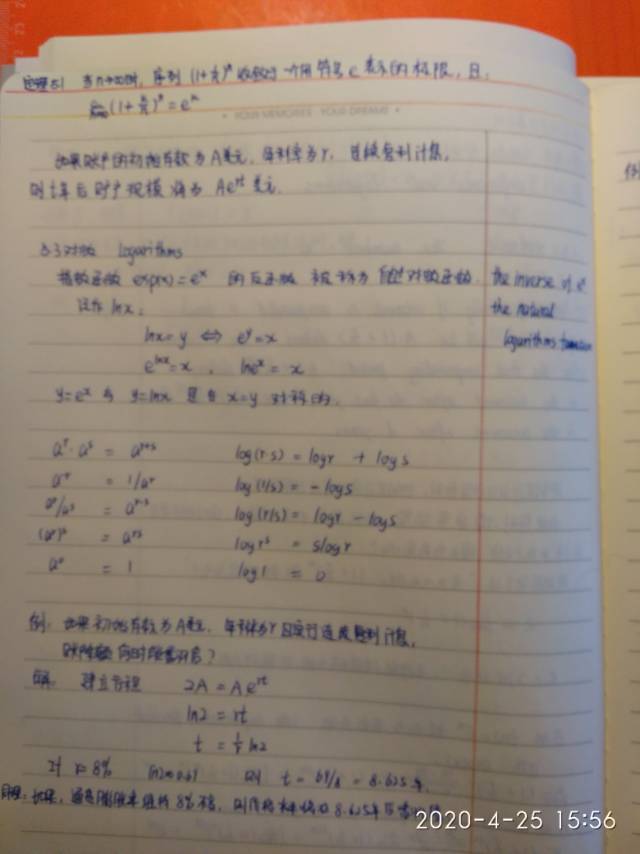 定理5.1 当n→∞时,序列 (1+1/n)ⁿ 收敛于一个用符号e表示的极限,且:
(1+k/n)ⁿ = eᵏ
YOUR MEMORIES · YOUR DREAMS
如果账户的初始存款为A美元,年利率为r,连续复利计息,
则t年后账户规模将为 Aeʳᵗ 美元.
5.3对数 logarithms
指数函数 exp(x) = eˣ 的反函数 被称为 自然对数函数. the inverse of eˣ
记作 lnx: the natural
lnx=y ⇔ eʸ=x logarithms function
eˡⁿˣ=x , lneˣ = x
y=eˣ 与 y=lnx 是与 x=y 对称的.
aʳ·aˢ = aʳ⁺ˢ log(r·s) = logr + logs
a⁻ʳ = 1/aʳ log(1/s) = -logs
aʳ/aˢ = aʳ⁻ˢ log(r/s) = logr - logs
(aʳ)ˢ = aʳˢ logrˢ = slogr
a⁰ = 1 log1 = 0
例: 如果初始存款为A美元,年利率为r且实行连续复利计息,
账户金额何时能翻倍?
解: 建立方程 2A = Aeʳᵗ
ln2 = rt
t = 1/r ln2
对 r=8% ln2≈0.69 则 t = 69/8 = 8.625年.
同理: 如果,通货膨胀率维持8%不变,则价格水平将在8.625年后
2020-4-25 15:56